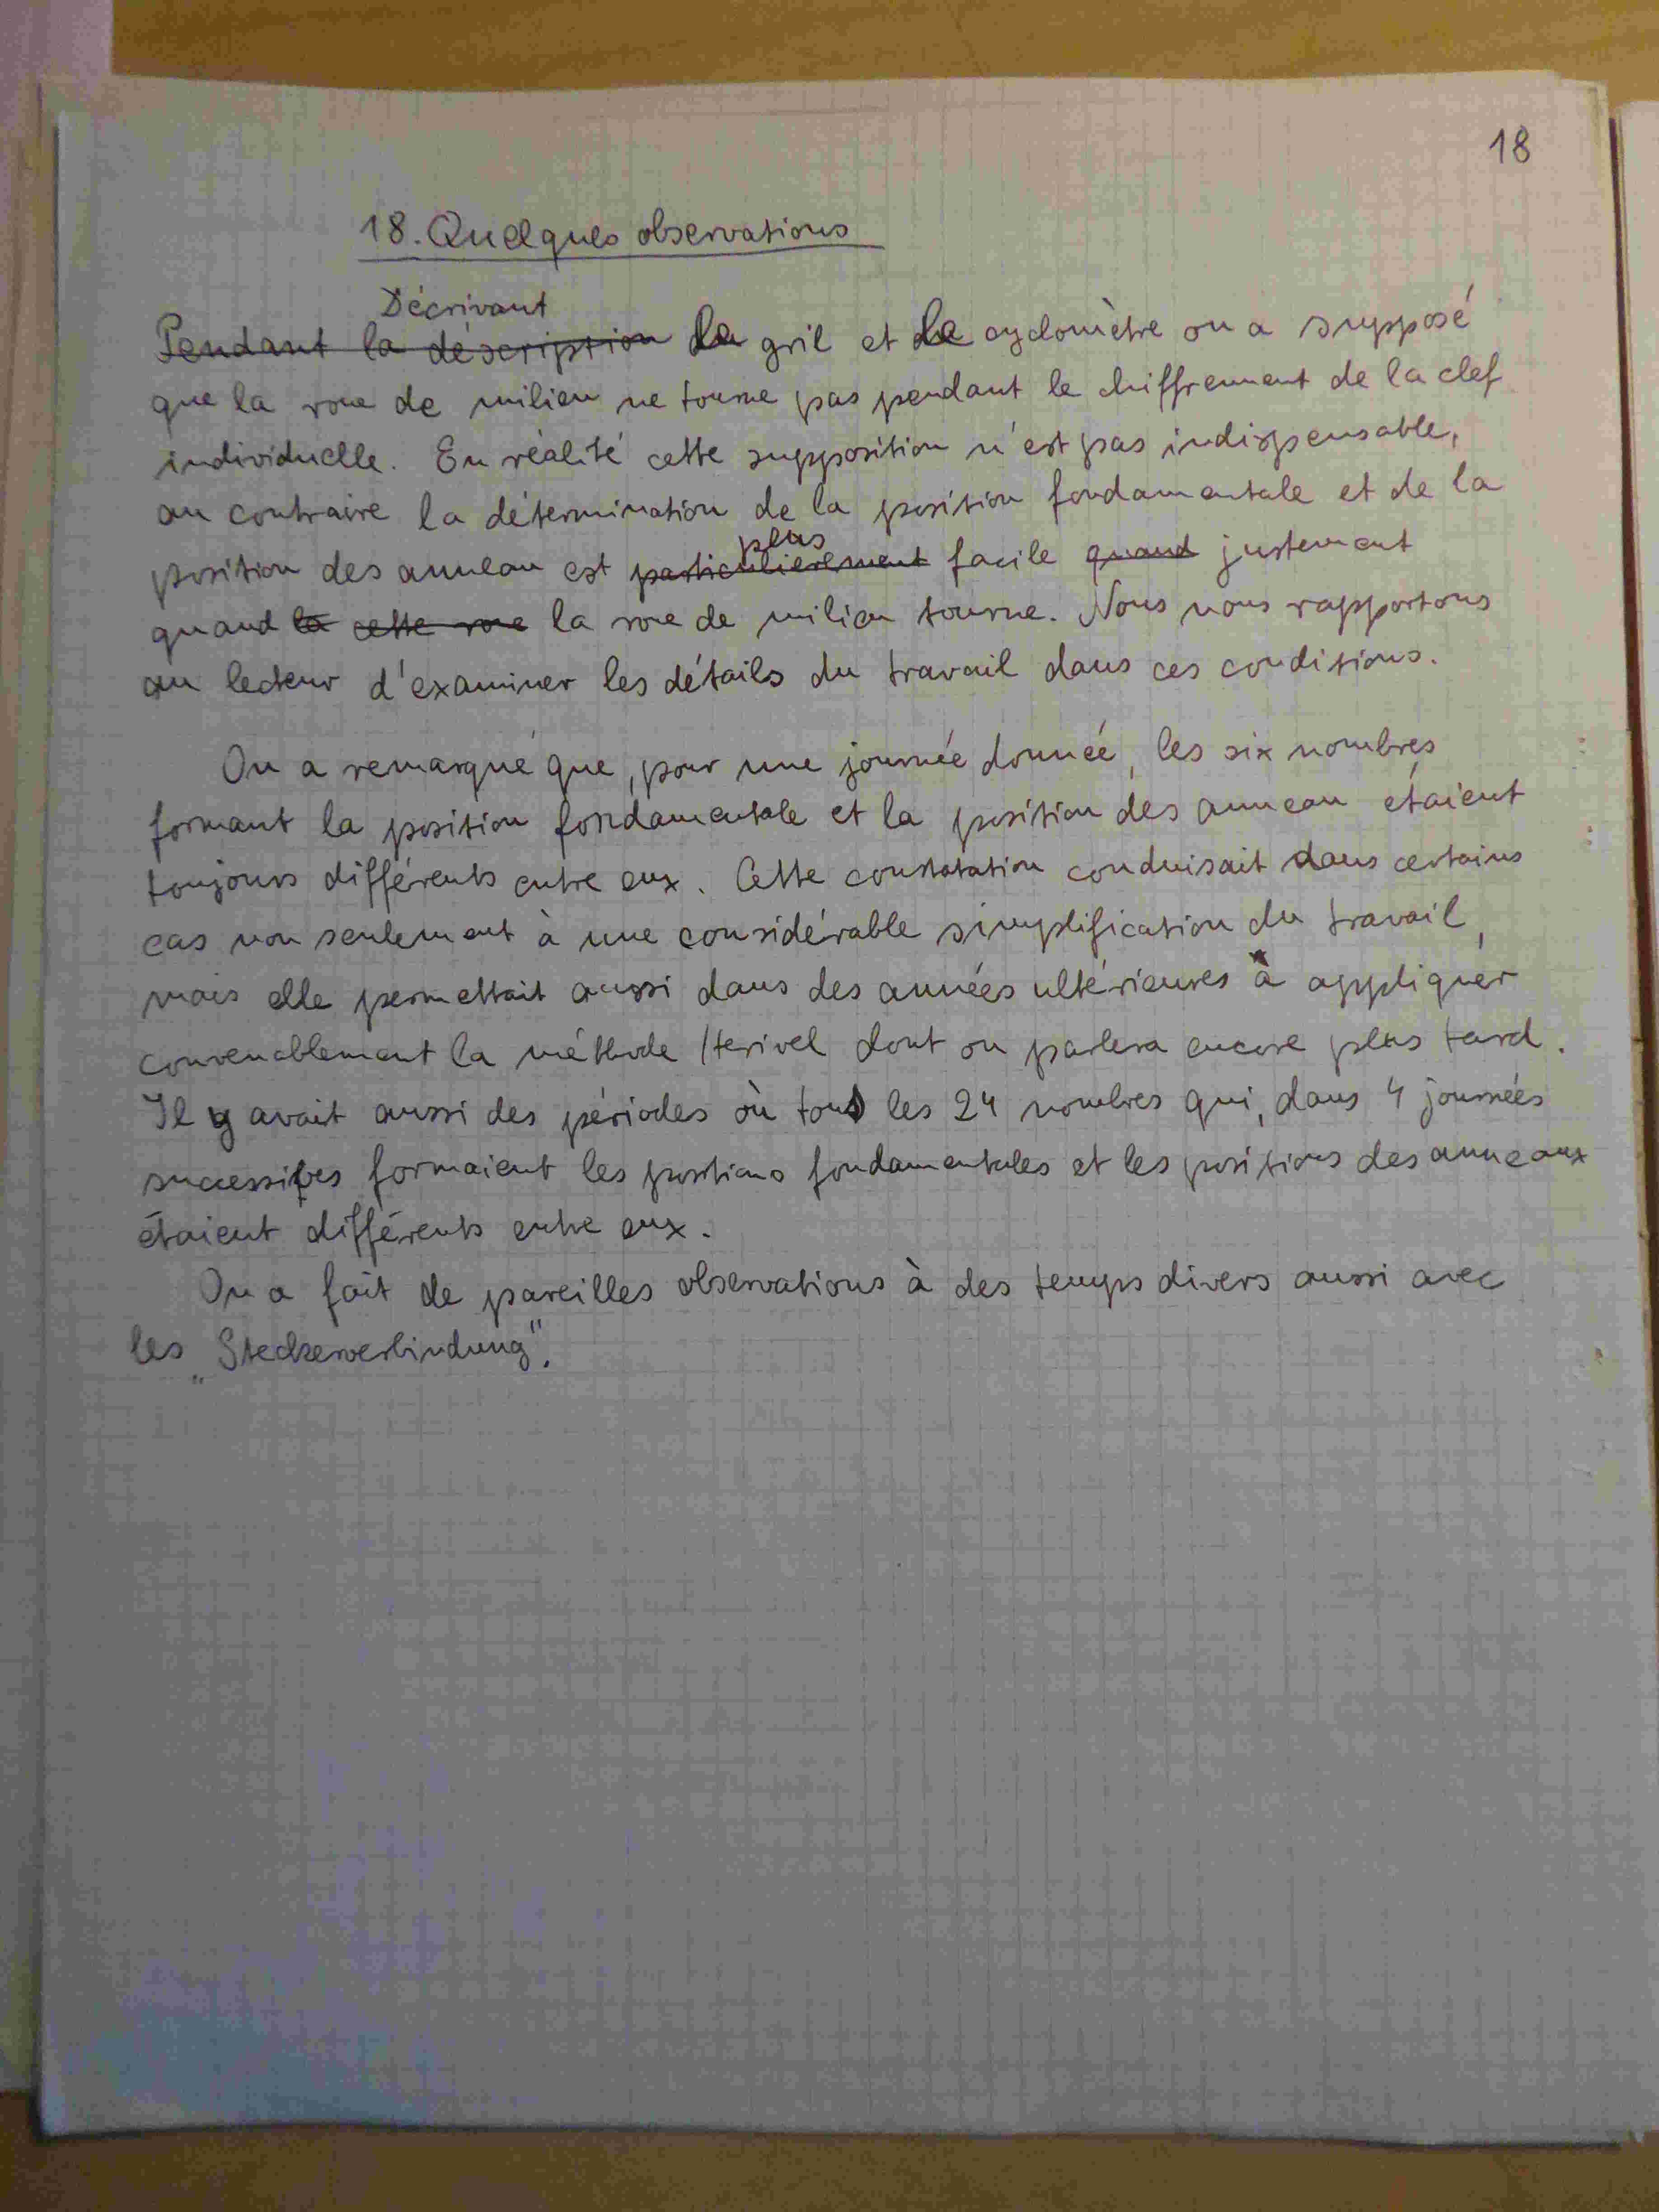 18
18. Quelques observations
Décrivant
Pendant la déscription le gril et le cyclomètre on a supposé
que la roue de milieu ne tourne pas pendant le chiffrement de la clef
individuelle. En réalité cette supposition n'est pas indispensable,
au contraire la détermination de la position fondamentale et de la
plus
position des anneau est particulièrement facile quand justement
quand la cette roue la roue de milieu tourne. Nous nous rapportons
au lecteur d'examiner les détails du travail dans ces conditions.
On a remarqué que, pour une journée donnée, les six nombres
formant la position fondamentale et la position des anneau étaient
toujours différents entre eux. Cette constatation conduisait dans certains
cas non seulement à une considérable simplification du travail,
mais elle permettait aussi dans des années ultérieures à appliquer
convenablement la méthode Herivel dont on parlera encore plus tard.
Il y avait aussi des périodes où tous les 24 nombres qui, dans 4 journées
successives formaient les positions fondamentales et les positions des anneaux
étaient différents entre eux.
On a fait de pareilles observations à des temps divers aussi avec
les „Steckerverbindung".